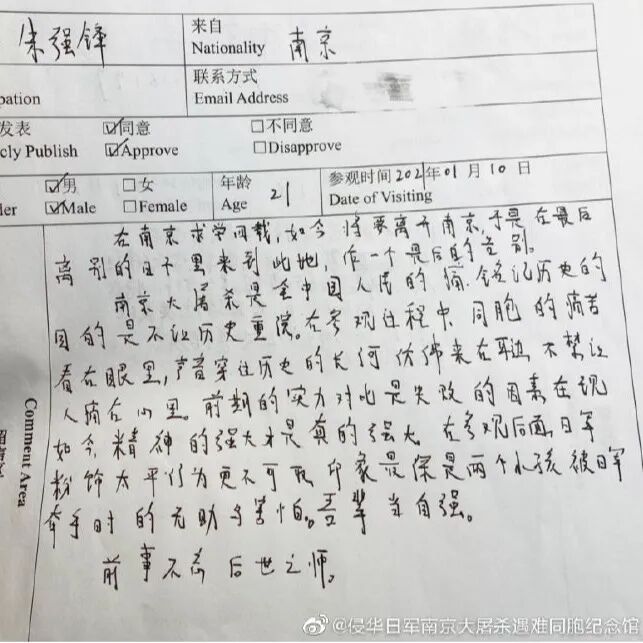 朱强锋
来自
Nationality 南京
pation
联系方式
Email Address
发表 ☑同意 □不同意
cly Publish ☑Approve □Disapprove
☑男 □女 年龄 21 参观时间 2021年01月10日
der ☑Male □Female Age Date of Visiting
在南京求学四载，如今将要离开南京，于是在最后
离别的日子里来到此地，作一个最后的告别。
南京大屠杀是全中国人民的痛，铭记历史的
目的是不让历史重演。在参观过程中，同胞的痛苦
看在眼里，声音穿往历史的长河仿佛来在耳边，不禁让
人痛在心里。前期的实力对比是失败的因素在现
如今，精神的强大才是真的强大。在参观后面，日军
粉饰太平行为更不可取，印象最深是两个小孩被日军
牵手时的无助与害怕。吾辈当自强。
前事不忘后世之师。
Comment Area
@侵华日军南京大屠杀遇难同胞纪念馆